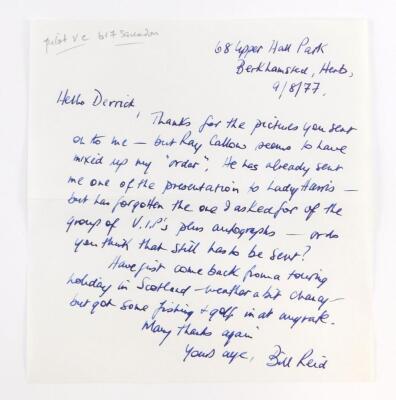 pilot V C 617 Squadron
68 Upper Hall Park
Berkhamsted, Herts,
9/8/77.
Hello Derrick,
Thanks for the pictures you sent
on to me – but Ray Callow seems to have
mixed up my "order". He has already sent
me one of the presentation to Lady Harris –
but has forgotten the one I asked for of the
group of V.I.P's plus autographs – or do
you think that still has to be sent?
Have just come back from a touring
holiday in Scotland – weather a bit chancy –
but got some fishing & golf in at anyrate.
Many thanks again
Yours aye, Bill Reid